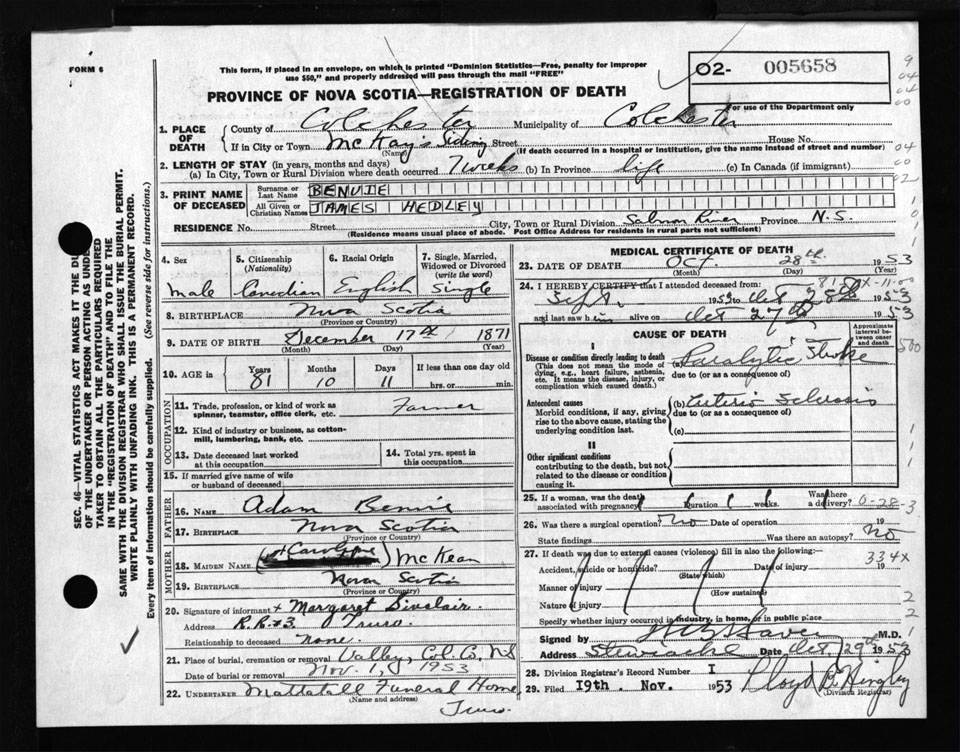 FORM 6
This form, if placed in an envelope, on which is printed "Dominion Statistics—Free, penalty for improper
use $50," and properly addressed will pass through the mail "FREE"
02- 005658
For use of the Department only
PROVINCE OF NOVA SCOTIA—REGISTRATION OF DEATH
1. PLACE OF DEATH County of Colchester Municipality of Colchester
If in City or Town McKay's Siding Street House No.
(Name) (If death occurred in a hospital or institution, give the name instead of street and number)
2. LENGTH OF STAY (in years, months and days)
(a) In City, Town or Rural Division where death occurred 7 weeks (b) In Province life (c) In Canada (if immigrant)
3. PRINT NAME OF DECEASED Surname or Last Name BENVIE
All Given or Christian Names JAMES HEDLEY
RESIDENCE No. Street City, Town or Rural Division Salmon River Province N.S.
(Residence means usual place of abode. Post Office Address for residents in rural parts not sufficient)
SEC. 46—VITAL STATISTICS ACT MAKES IT THE
OF THE UNDERTAKER OR PERSON ACTING AS
TAKER TO OBTAIN ALL THE PARTICULARS REQUIRED
IN THE "REGISTRATION OF DEATH" AND TO FILE THE
SAME WITH THE DIVISION REGISTRAR WHO SHALL ISSUE THE BURIAL PERMIT.
WRITE PLAINLY WITH UNFADING INK. THIS IS A PERMANENT RECORD.
Every item of information should be carefully supplied. (See reverse side for instructions.)
4. Sex Male
5. Citizenship (Nationality) Canadian
6. Racial Origin English
7. Single, Married, Widowed or Divorced (write the word) Single
8. BIRTHPLACE Nova Scotia
(Province or Country)
9. DATE OF BIRTH December 17th 1871
(Month) (Day) (Year)
10. AGE in Years 81 Months 10 Days 11 If less than one day hrs. or min.
OCCUPATION
11. Trade, profession, or kind of work as spinner, teamster, office clerk, etc. Farmer
12. Kind of industry or business, as cotton-mill, lumbering, bank, etc.
13. Date deceased last worked at this occupation
14. Total yrs. spent in this occupation
15. If married give name of wife or husband of deceased
FATHER
16. Name Adam Benvie
17. Birthplace Nova Scotia
(Province or Country)
MOTHER
18. Maiden Name McKean
19. Birthplace Nova Scotia
(Province or Country)
20. Signature of informant x Margaret Sinclair.
Address R.R.#3 Truro.
Relationship to deceased None.
21. Place of burial, cremation or removal Valley, Col. Co. NS
Date of burial or removal Nov. 1, 1953
22. UNDERTAKER Mattatall Funeral Home
(Name and address)
Truro.
MEDICAL CERTIFICATE OF DEATH
23. DATE OF DEATH Oct. 28th 1953
(Month) (Day) (Year)
24. I HEREBY CERTIFY that I attended deceased from:
Sept 1953 to Oct 28th 1953
and last saw him alive on Oct 27th 1953
CAUSE OF DEATH
Approximate interval between onset and death
I
Disease or condition directly leading to death
(This does not mean the mode of dying, e.g., heart failure, asthenia, etc. It means the disease, injury, or complication which caused death.)
(a) Paralytic Stroke
due to (or as a consequence of)
Antecedent causes
Morbid conditions, if any, giving rise to the above cause, stating the underlying condition last.
(b) Arterio Sclerosis
due to (or as a consequence of)
(c)
II
Other significant conditions
contributing to the death, but not related to the disease or condition causing it.
25. If a woman, was the death associated with pregnancy? Duration weeks. Was there a delivery?
26. Was there a surgical operation? no Date of operation 19
State findings Was there an autopsy? no
27. If death was due to external causes (violence) fill in also the following:—
Accident, suicide or homicide? Date of injury 19
(State which)
Manner of injury
(How sustained)
Nature of injury
Specify whether injury occurred in industry, in home, or in public place
334X
Signed by M.D.
Address Stewiacke Date Oct. 29 1953
28. Division Registrar's Record Number I
29. Filed 19th. Nov. 1953 Lloyd B. Hingley
(Division Registrar)